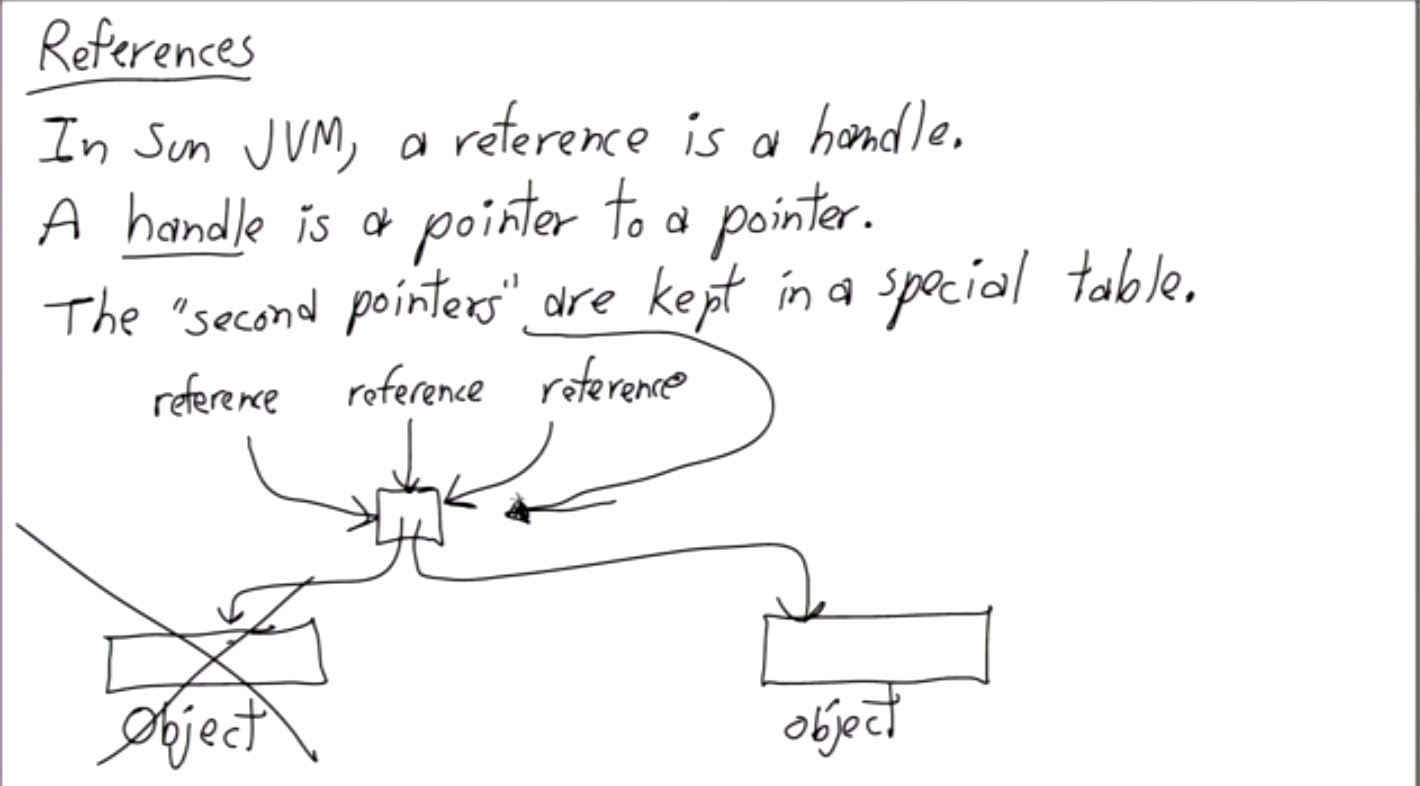 References
In Sun JVM, a reference is a handle.
A handle is a pointer to a pointer.
The "second pointers" are kept in a special table.
reference reference reference
Object object